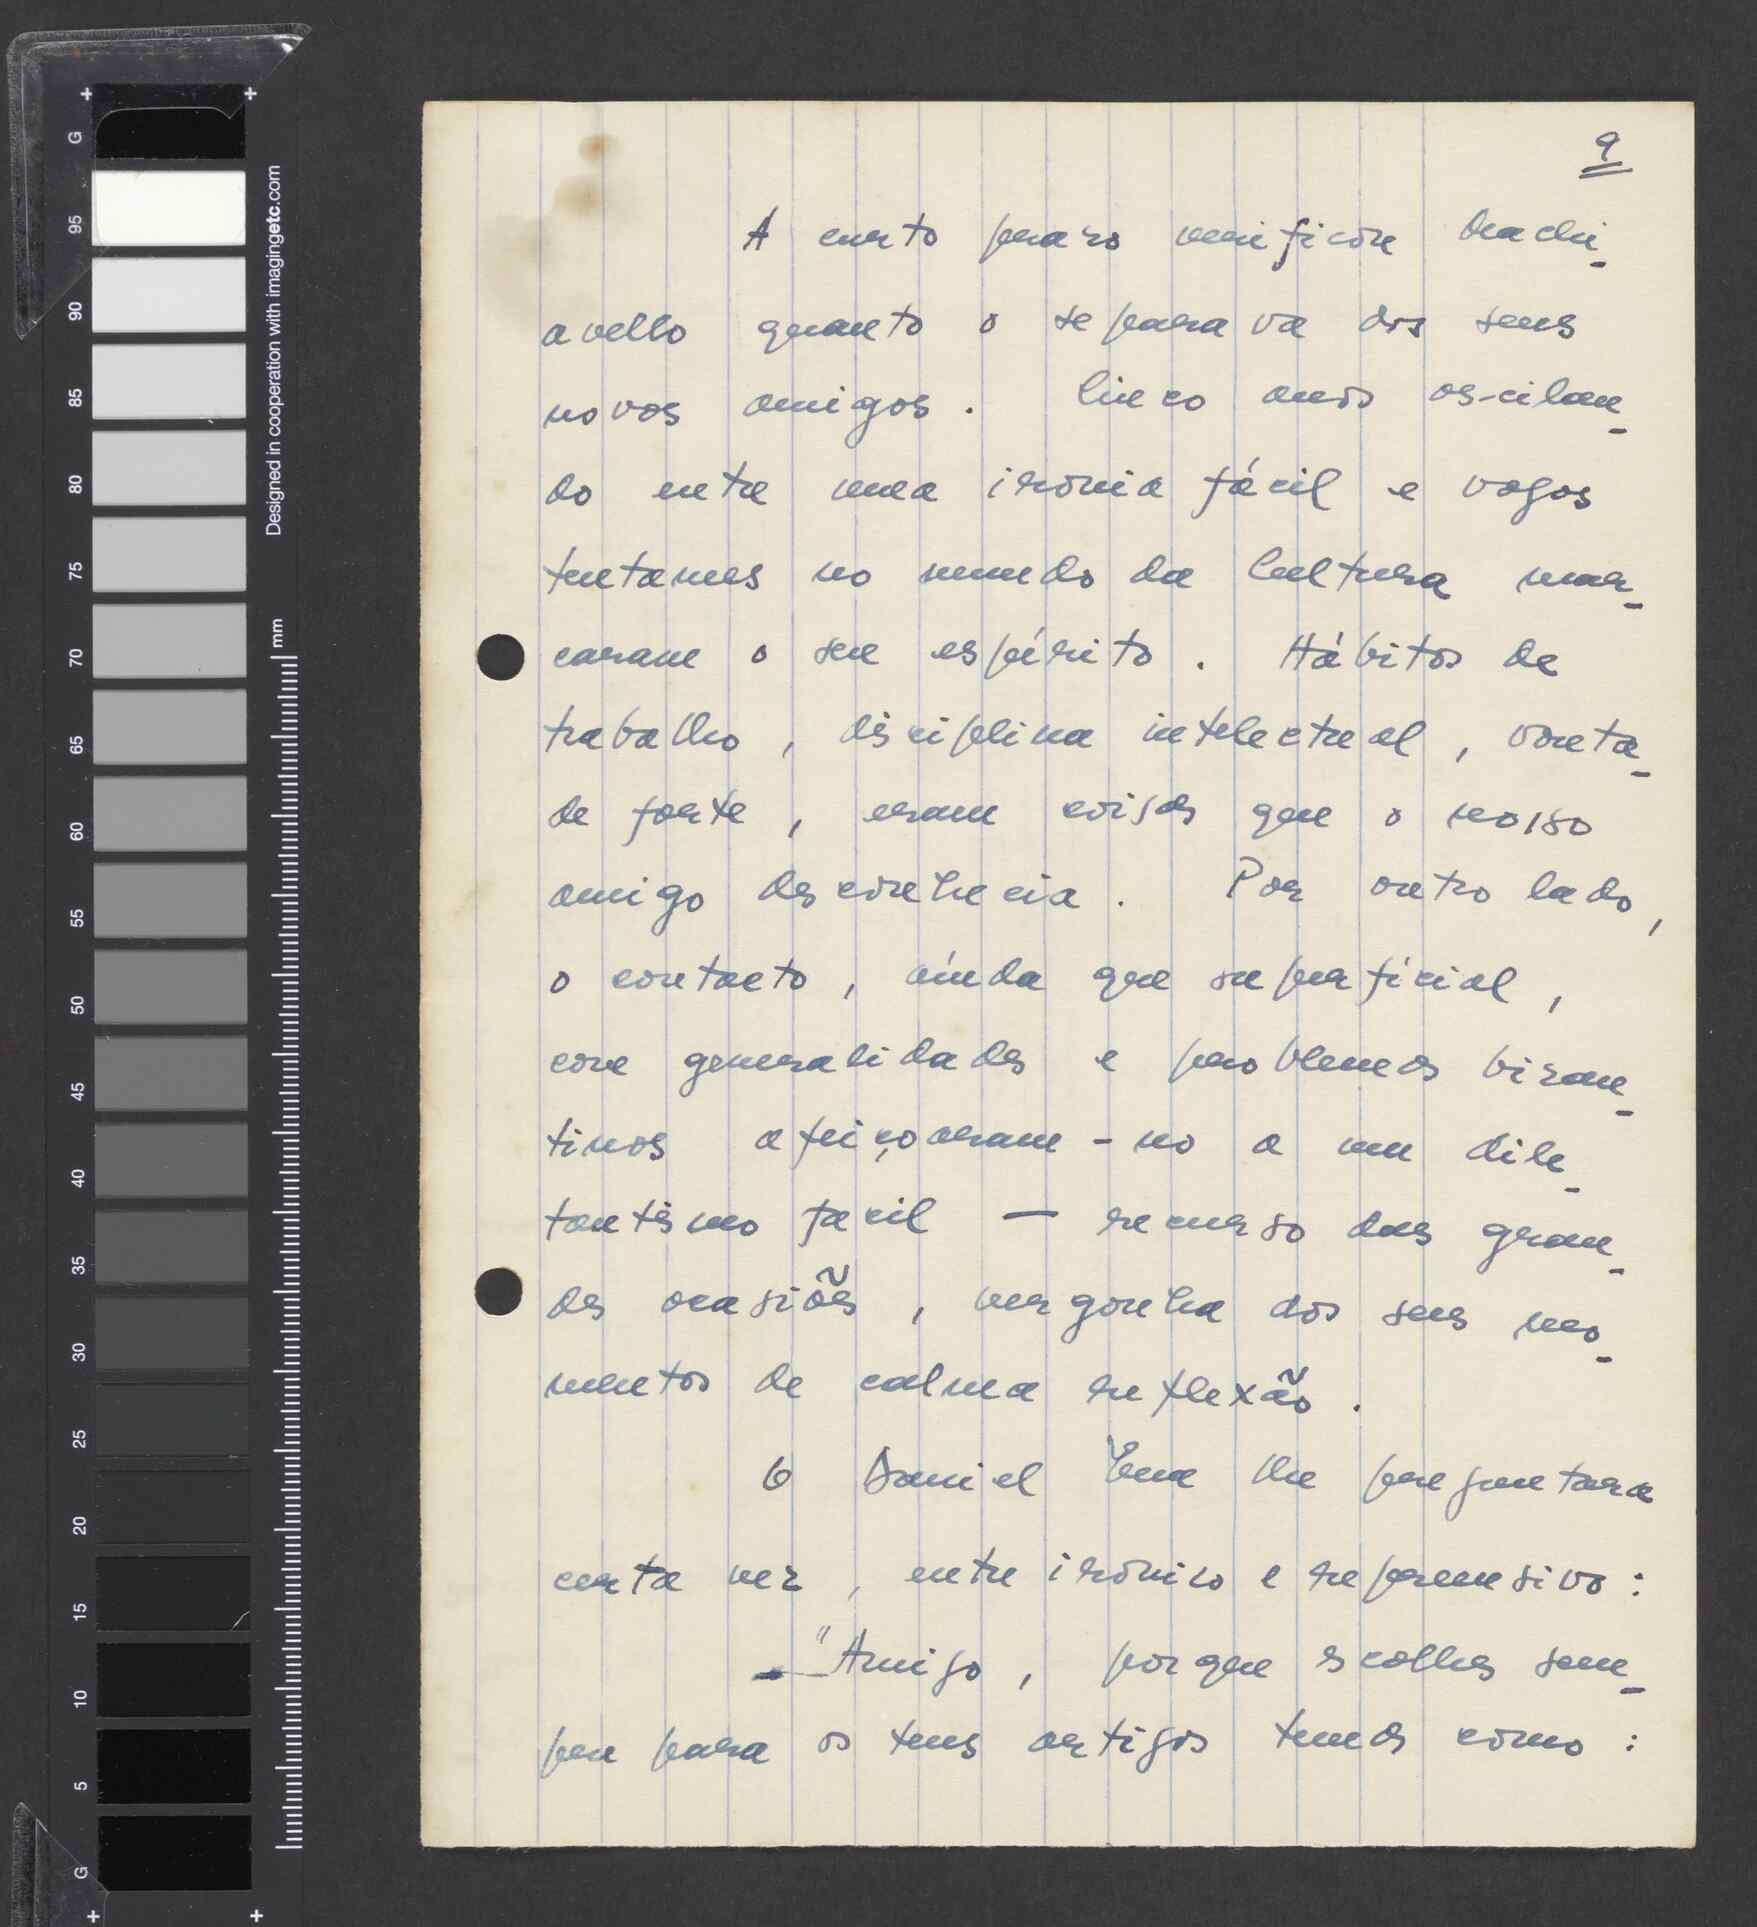 9
A curto prazo verificou Machi-
avello quanto o separava dos seus
novos amigos. Cinco anos oscilan-
do entre uma ironia fácil e vagos
tentames no mundo da Cultura mar-
caram o seu espírito. Hábitos de
trabalho, disciplina intelectual, vonta-
de forte, eram coisas que o nosso
amigo desconhecia. Por outro lado,
o contacto, aínda que superficial,
com generalidades e problemas bizan-
tinos afeiçoaram-no a um dile-
tantismo facil — recurso das gran-
des ocasiões, vergonha dos seus mo-
mentos de calma reflexão.
O Daniel Lima lhe preguntara
certa vez, entre irónico e repreensivo:
— "Amigo, porque escolhes sem-
pre para os teus artigos temas como:
G
95
90
85
80
75
70
65
60
55
50
45
40
35
30
25
20
15
10
5
G
Designed in cooperation with imagingetc.com
mm